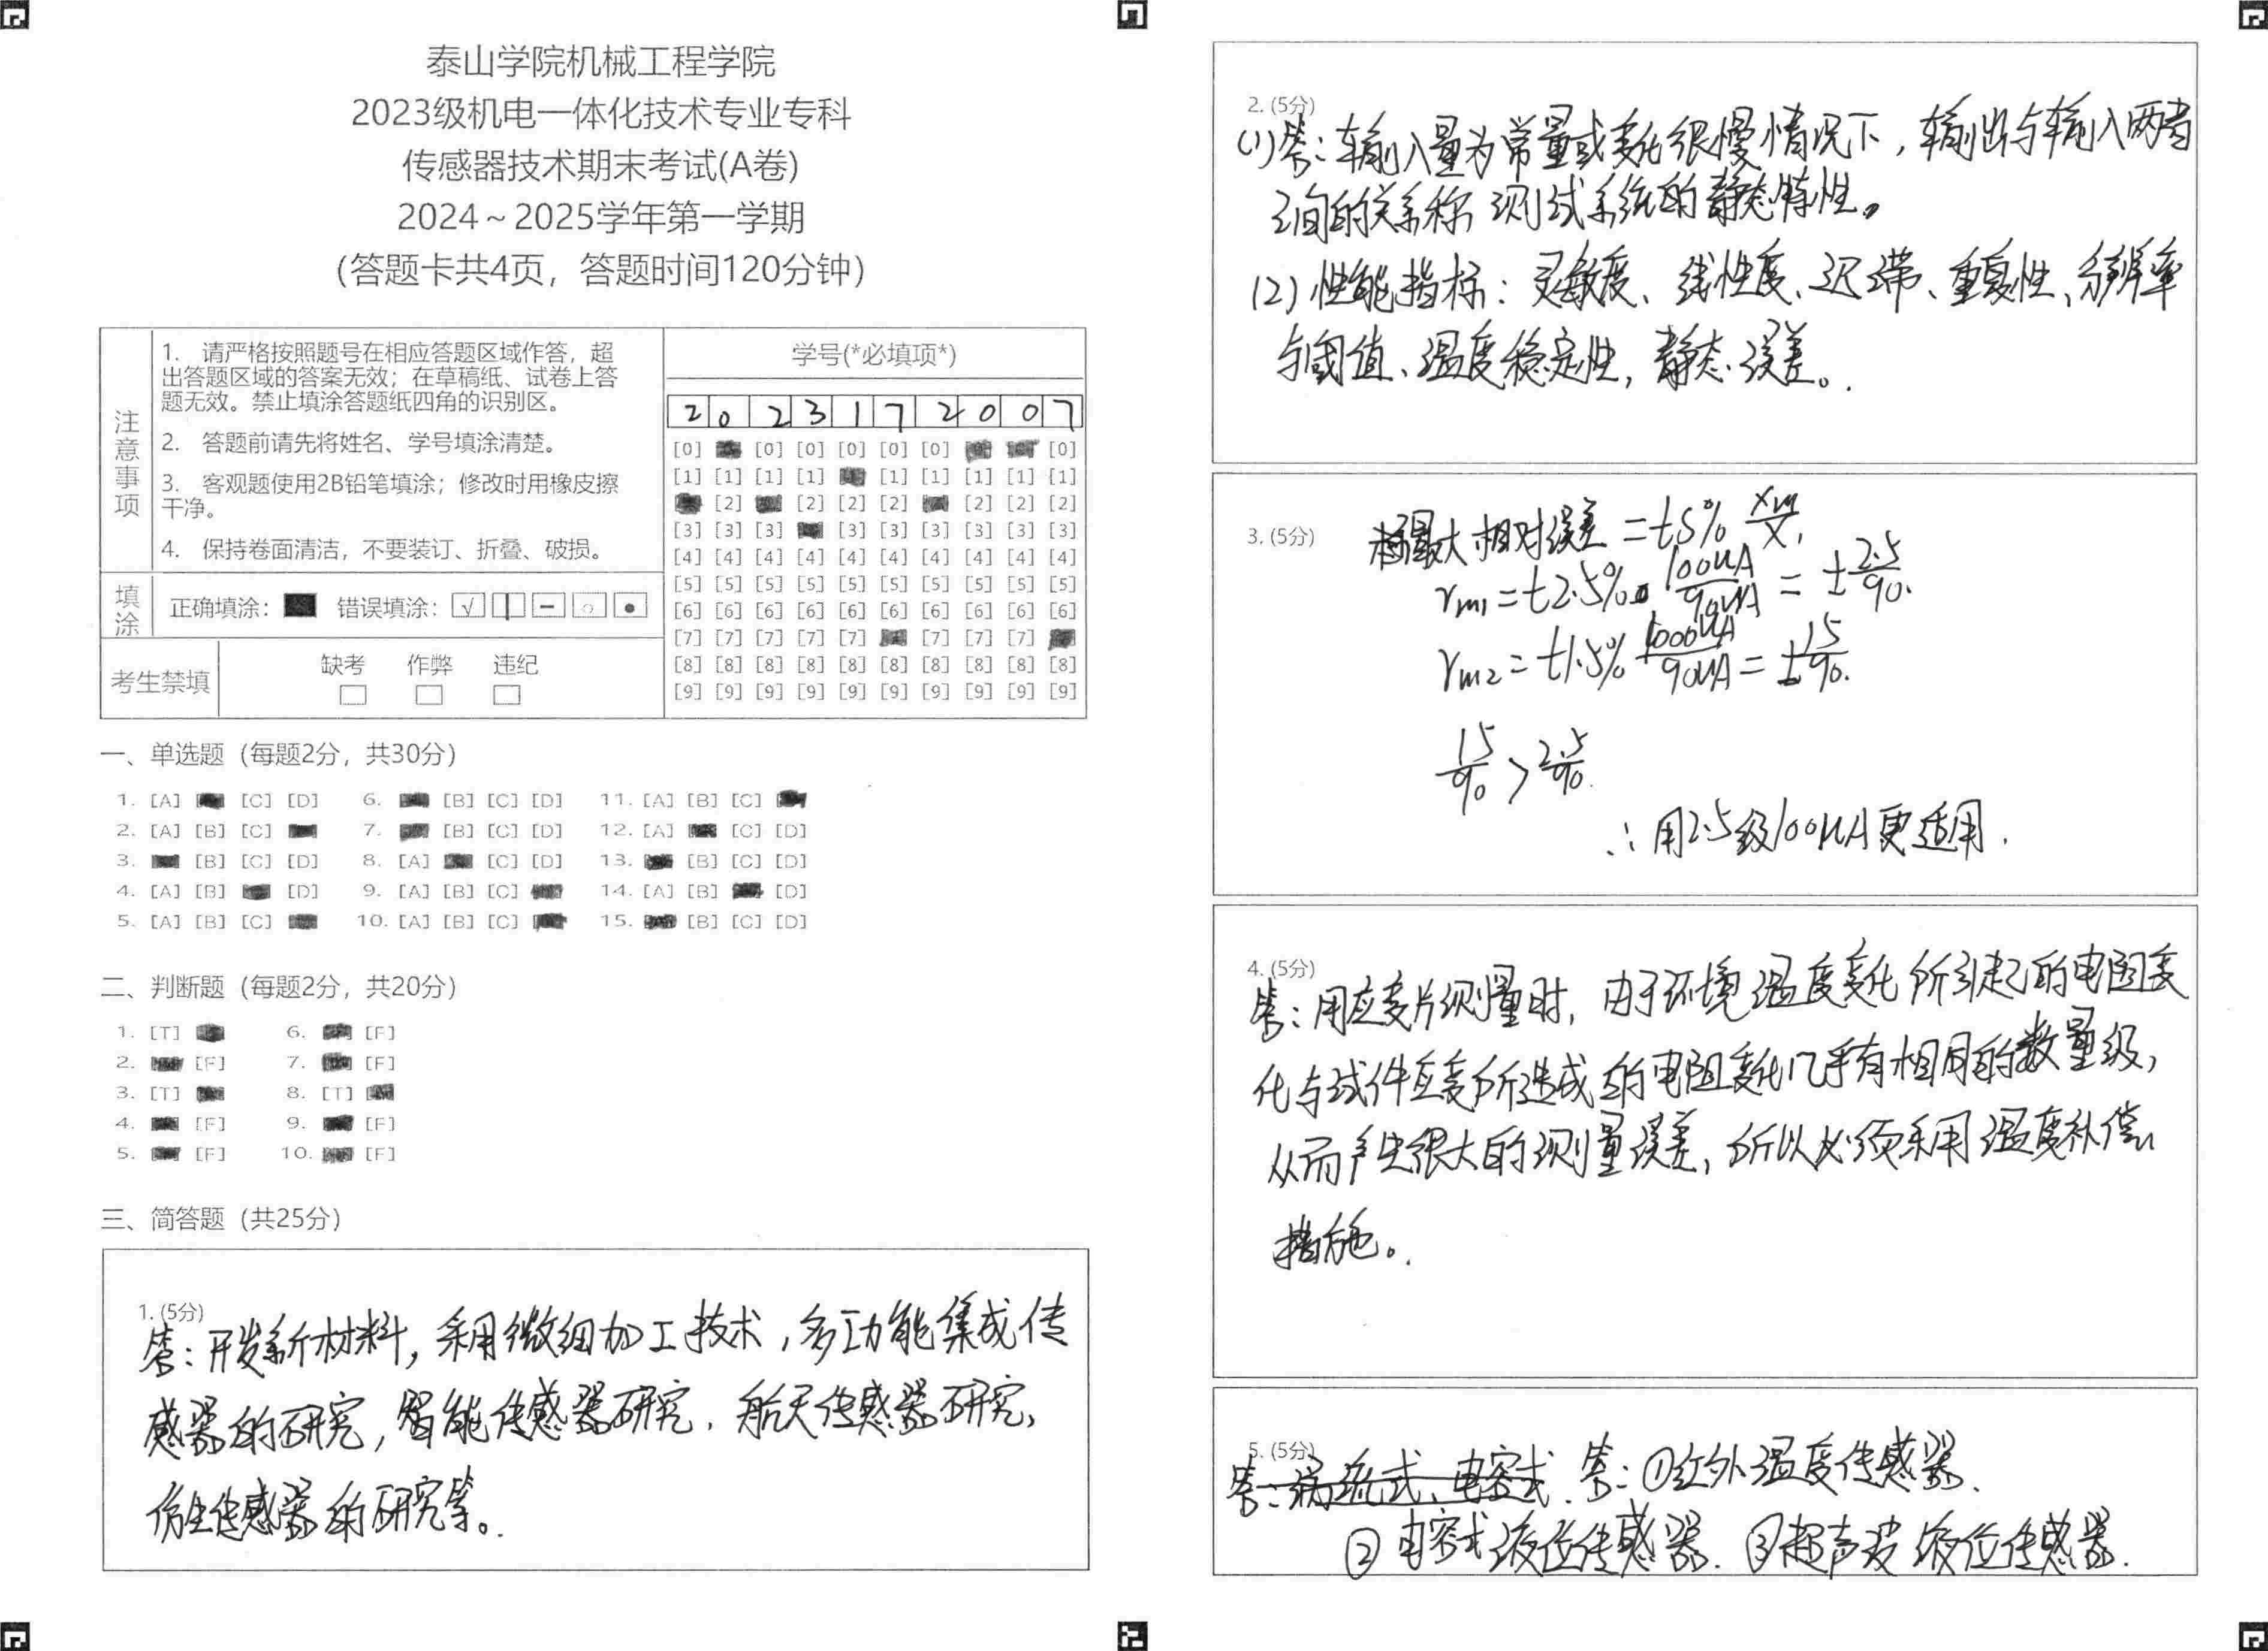 泰山学院机械工程学院
2023级机电一体化技术专业专科
传感器技术期末考试(A卷)
2024～2025学年第一学期
（答题卡共4页，答题时间120分钟）
注意事项
1. 请严格按照题号在相应答题区域作答，超
出答题区域的答案无效；在草稿纸、试卷上答
题无效。禁止填涂答题纸四角的识别区。
2. 答题前请先将姓名、学号填涂清楚。
3. 客观题使用2B铅笔填涂；修改时用橡皮擦
干净。
4. 保持卷面清洁，不要装订、折叠、破损。
填涂
正确填涂： 错误填涂：
考生禁填
缺考 作弊 违纪
学号(*必填项*)
2 0 2 3 1 7 2 0 0 7
[0] [0] [0] [0] [0] [0] [0]
[1] [1] [1] [1] [1] [1] [1] [1] [1]
[2] [2] [2] [2] [2] [2] [2]
[3] [3] [3] [3] [3] [3] [3] [3] [3]
[4] [4] [4] [4] [4] [4] [4] [4] [4] [4]
[5] [5] [5] [5] [5] [5] [5] [5] [5] [5]
[6] [6] [6] [6] [6] [6] [6] [6] [6] [6]
[7] [7] [7] [7] [7] [7] [7] [7]
[8] [8] [8] [8] [8] [8] [8] [8] [8] [8]
[9] [9] [9] [9] [9] [9] [9] [9] [9] [9]
一、单选题（每题2分，共30分）
1. [A] [C] [D] 6. [B] [C] [D] 11. [A] [B] [C]
2. [A] [B] [C] 7. [B] [C] [D] 12. [A] [C] [D]
3. [B] [C] [D] 8. [A] [C] [D] 13. [B] [C] [D]
4. [A] [B] [D] 9. [A] [B] [C] 14. [A] [B] [D]
5. [A] [B] [C] 10. [A] [B] [C] 15. [B] [C] [D]
二、判断题（每题2分，共20分）
1. [T] 6. [F]
2. [F] 7. [F]
3. [T] 8. [T]
4. [F] 9. [F]
5. [F] 10. [F]
三、简答题（共25分）
1. (5分)
答：开发新材料，采用微细加工技术，多功能集成传
感器的研究，智能传感器研究，航天传感器研究，
仿生传感器的研究等。
2. (5分)
(1)答：输入量为常量或变化很慢情况下，输出与输入两者
之间的关系称测试系统的静态特性。
(2)性能指标：灵敏度、线性度、迟滞、重复性、分辨率
与阈值、温度稳定性，静态误差。
3. (5分)
最大相对误差 = ±5% xm/x
rm1 = ±2.5% 100μA/90μA = ±2.5/90.
rm2 = ±1.5% 1000μA/90μA = ±15/90.
15/90 > 2.5/90.
∴用2.5级100μA更适用.
4. (5分)
答：用应变片测量时，由于环境温度变化所引起的电阻变
化与试件应变所造成的电阻变化几乎有相同的数量级，
从而产生很大的测量误差，所以必须采用温度补偿
措施。
5. (5分)
答：涡流式、电容式. 答：①红外温度传感器.
②电容式液位传感器. ③超声波液位传感器.